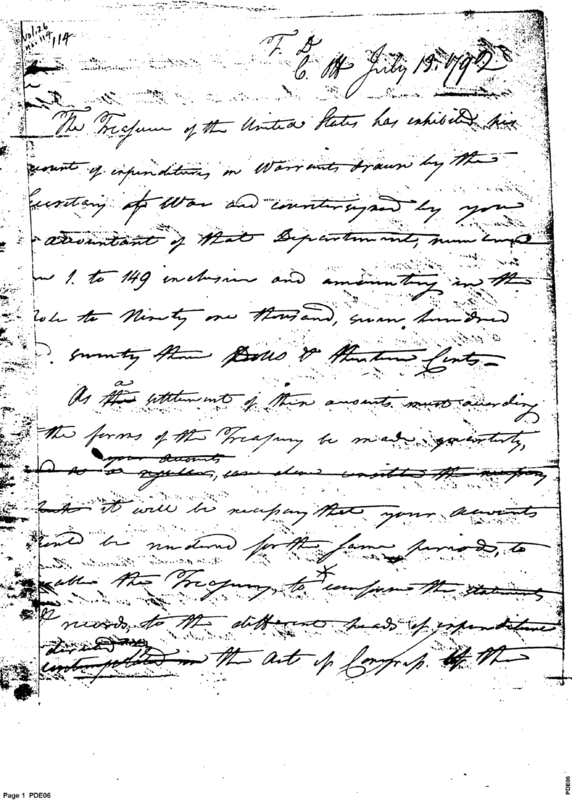 Vol: 26
No: 114
114
T. D
C. Off July 13. 1792
The Treasurer of the United States has exhibited his
count of expenditures on Warrants drawn by the
Secretary of War and countersigned by you
accountant of that Department, numbered
1. to 149 inclusive and amounting in the
to Ninety one thousand, seven hundred
seventy three Dolls & thirteen Cents—
As a settlement of these accounts must according
the forms of the Treasury be made quarterly,
your accounts
as a regular, can alone the necessary
it will be necessary that your Accounts
be rendered for the same periods, to
the Treasury, to conform the statements
records, to the different heads of expenditure
directed
contemplated in the Act of Congress. If the
Page 1 PDE06
PDE06